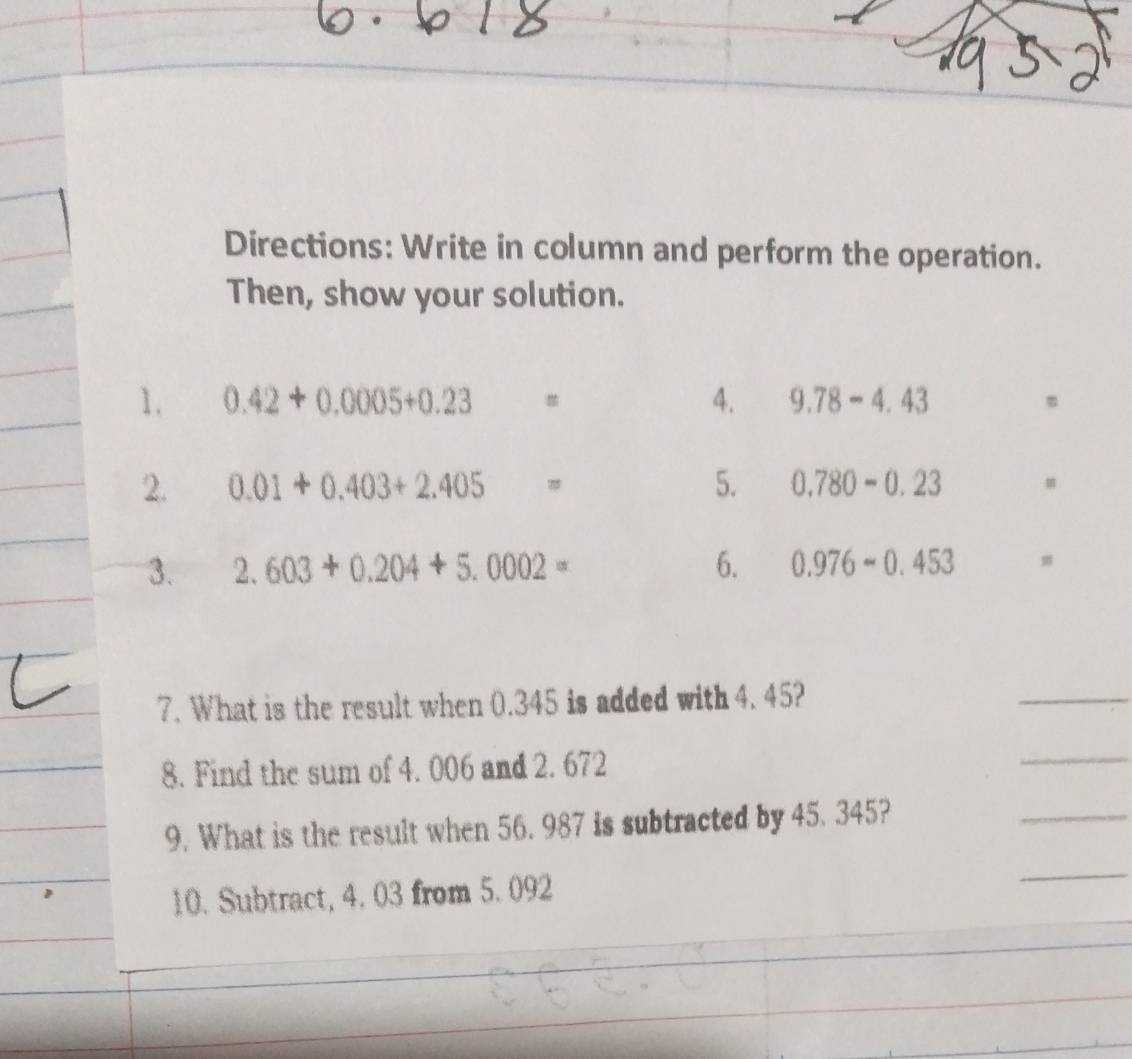 6.618
.952
Directions: Write in column and perform the operation.
Then, show your solution.
1. 0.42 + 0.0005+0.23 =
4. 9.78 - 4. 43 =
2. 0.01 + 0.403+ 2.405 =
5. 0.780 - 0. 23 =
3. 2. 603 + 0.204 + 5. 0002 =
6. 0.976 - 0. 453 =
7. What is the result when 0.345 is added with 4. 45? ______
8. Find the sum of 4. 006 and 2. 672 ______
9. What is the result when 56. 987 is subtracted by 45. 345? ______
10. Subtract, 4. 03 from 5. 092 ______